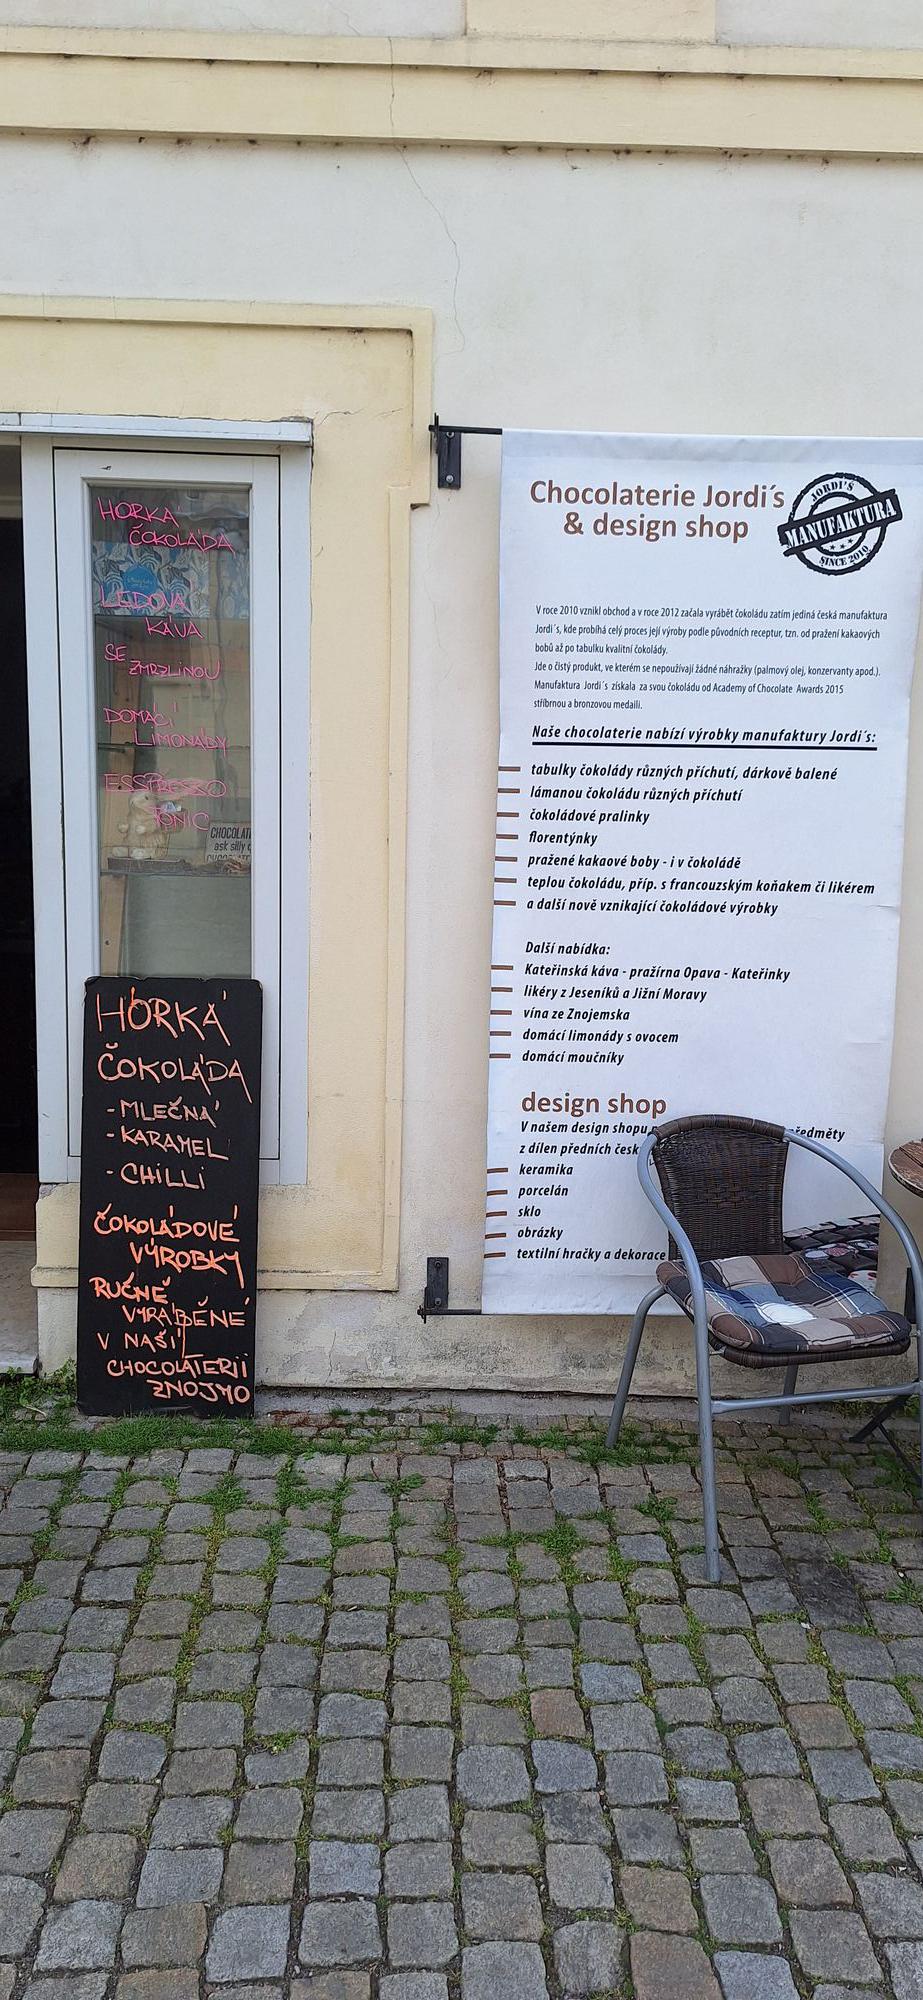 HORKÁ
ČOKOLÁDA
LEDOVÁ
KÁVA
SE
ZMRZLINOU
DOMÁCÍ
LIMONÁDY
ESSPRESSO
TONIC
CHOCOLAT
ask silly
HORKÁ
ČOKOLÁDA
- MLEČNÁ
- KARAMEL
- CHILLI
ČOKOLÁDOVÉ
VÝROBKY
RUČNĚ
VYRÁBĚNÉ
V NAŠÍ
CHOCOLATERII
ZNOJMO
Chocolaterie Jordi´s
& design shop
JORDI'S
MANUFAKTURA
SINCE 2010
V roce 2010 vznikl obchod a v roce 2012 začala vyrábět čokoládu zatím jediná česká manufaktura
Jordi´s, kde probíhá celý proces její výroby podle původních receptur, tzn. od pražení kakaových
bobů až po tabulku kvalitní čokolády.
Jde o čistý produkt, ve kterém se nepoužívají žádné náhražky (palmový olej, konzervanty apod.).
Manufaktura Jordi´s získala za svou čokoládu od Academy of Chocolate Awards 2015
stříbrnou a bronzovou medaili.
Naše chocolaterie nabízí výrobky manufaktury Jordi´s:
tabulky čokolády různých příchutí, dárkově balené
lámanou čokoládu různých příchutí
čokoládové pralinky
florentýnky
pražené kakaové boby - i v čokoládě
teplou čokoládu, příp. s francouzským koňakem či likérem
a další nově vznikající čokoládové výrobky
Další nabídka:
Kateřinská káva - pražírna Opava - Kateřinky
likéry z Jeseníků a Jižní Moravy
vína ze Znojemska
domácí limonády s ovocem
domácí moučníky
design shop
V našem design shopu předměty
z dílen předních česk
keramika
porcelán
sklo
obrázky
textilní hračky a dekorace